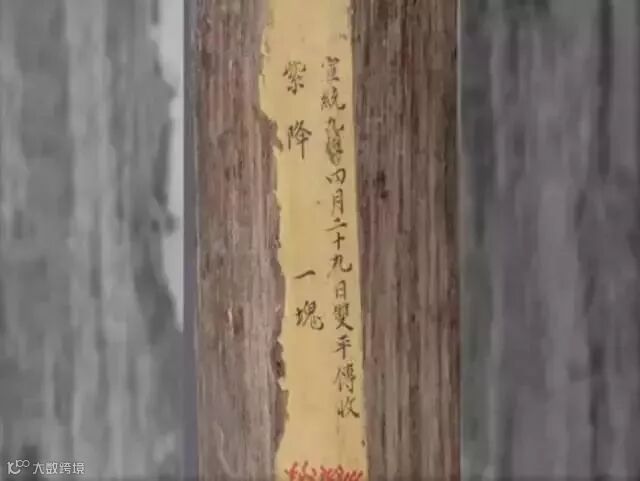 宣統九年四月二十九日雙平傳收
紫降 一塊
大数跨境